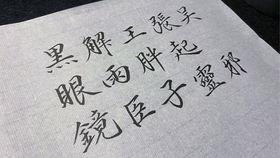 吳邪
張起靈
王胖子
解雨臣
黑眼鏡